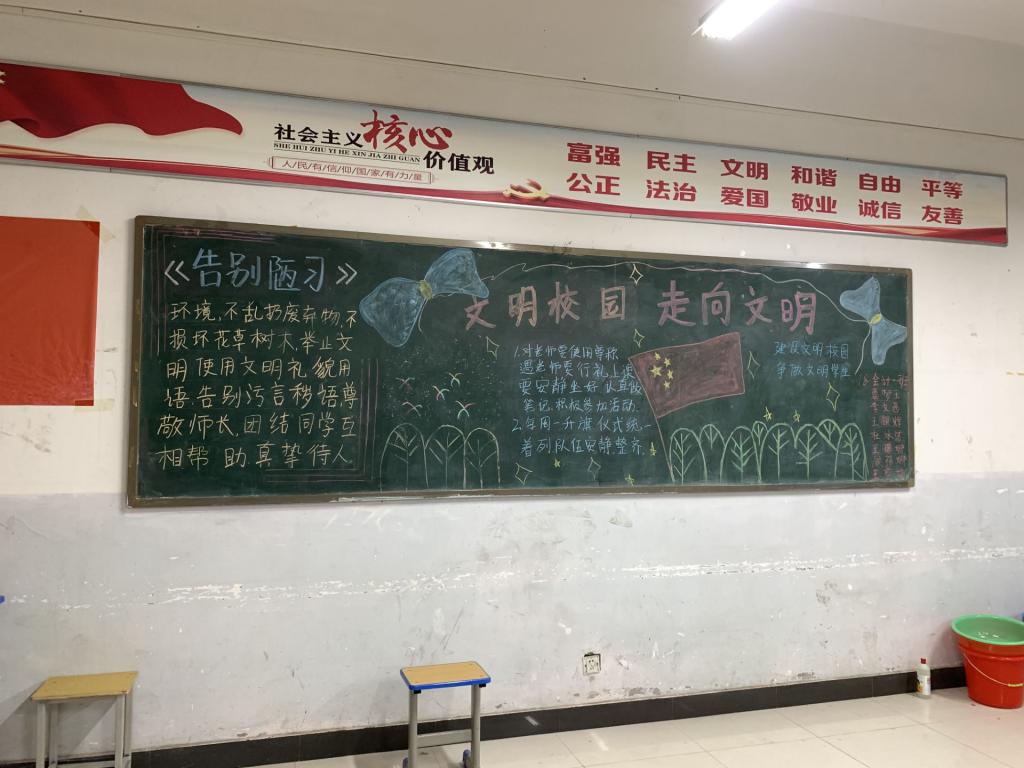 社会主义核心价值观
SHE HUI ZHU YI HE XIN JIA ZHI GUAN
人/民/有/信/仰/国/家/有/力/量
富强 民主 文明 和谐 自由 平等
公正 法治 爱国 敬业 诚信 友善
《告别陋习》
环境,不乱扔废弃物,不
损坏花草树木举止文
明使用文明礼貌用
语,告别污言秽语尊
敬师长,团结同学互
相帮助,真挚待人
文明校园 走向文明
1.对老师要使用尊称
遇老师要行礼上课
要安静坐好认真做
笔记,积极参加活动.
2.每周一升旗仪式统一
着列队伍安静整齐.
建设文明校园
争做文明学生